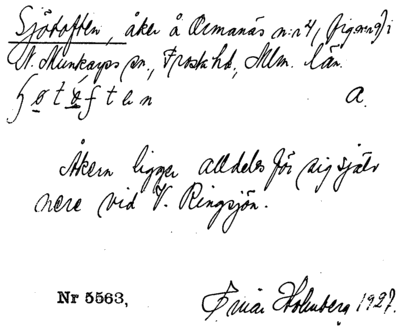 Sjötoften, åker å Ormanäs n:r 4, (fig. nr 9) i
N. Munkarps sn., Frosta hd, Mlm. län.
ʃøtáften a.
Åkern ligger alldeles för sig själv
nere vid V. Ringsjön.
Nr 5563,
Einar Holmberg 1927.